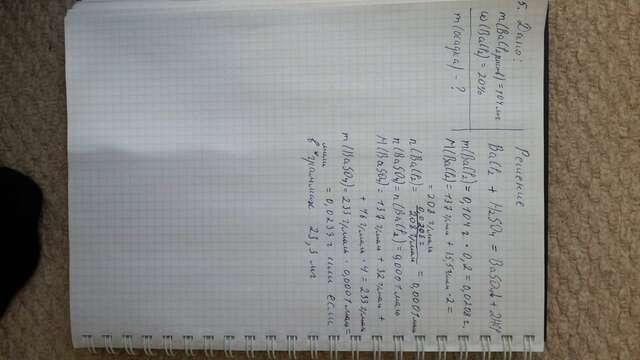 5. Дано:
m(BaCl₂ раств) = 104 мг
ω(BaCl₂) = 20%
m(осадка) - ?
Решение
BaCl₂ + H₂SO₄ = BaSO₄↓ + 2HCl
m(BaCl₂) = 0,104 г · 0,2 = 0,0208 г.
M(BaCl₂) = 137 г/моль + 35,5 г/моль · 2 =
= 208 г/моль
n(BaCl₂) = 0,0208 г / 208 г/моль = 0,0001 моль
n(BaSO₄) = n(BaCl₂) = 0,0001 моль
M(BaSO₄) = 137 г/моль + 32 г/моль +
+ 16 г/моль · 4 = 233 г/моль
m(BaSO₄) = 233 г/моль · 0,0001 моль =
= 0,0233 г или если
в миллиграммах 23,3 мг